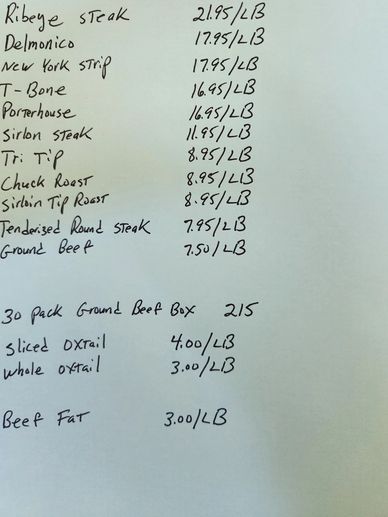 Ribeye steak 21.95/LB
Delmonico 17.95/LB
New York strip 17.95/LB
T-Bone 16.95/LB
Porterhouse 16.95/LB
Sirlon steak 11.95/LB
Tri Tip 8.95/LB
Chuck Roast 8.95/LB
Sirloin Tip Roast 8.95/LB
Tenderized Round steak 7.95/LB
Ground Beef 7.50/LB
30 pack Ground Beef Box 215
sliced oxtail 4.00/LB
whole oxtail 3.00/LB
Beef Fat 3.00/LB